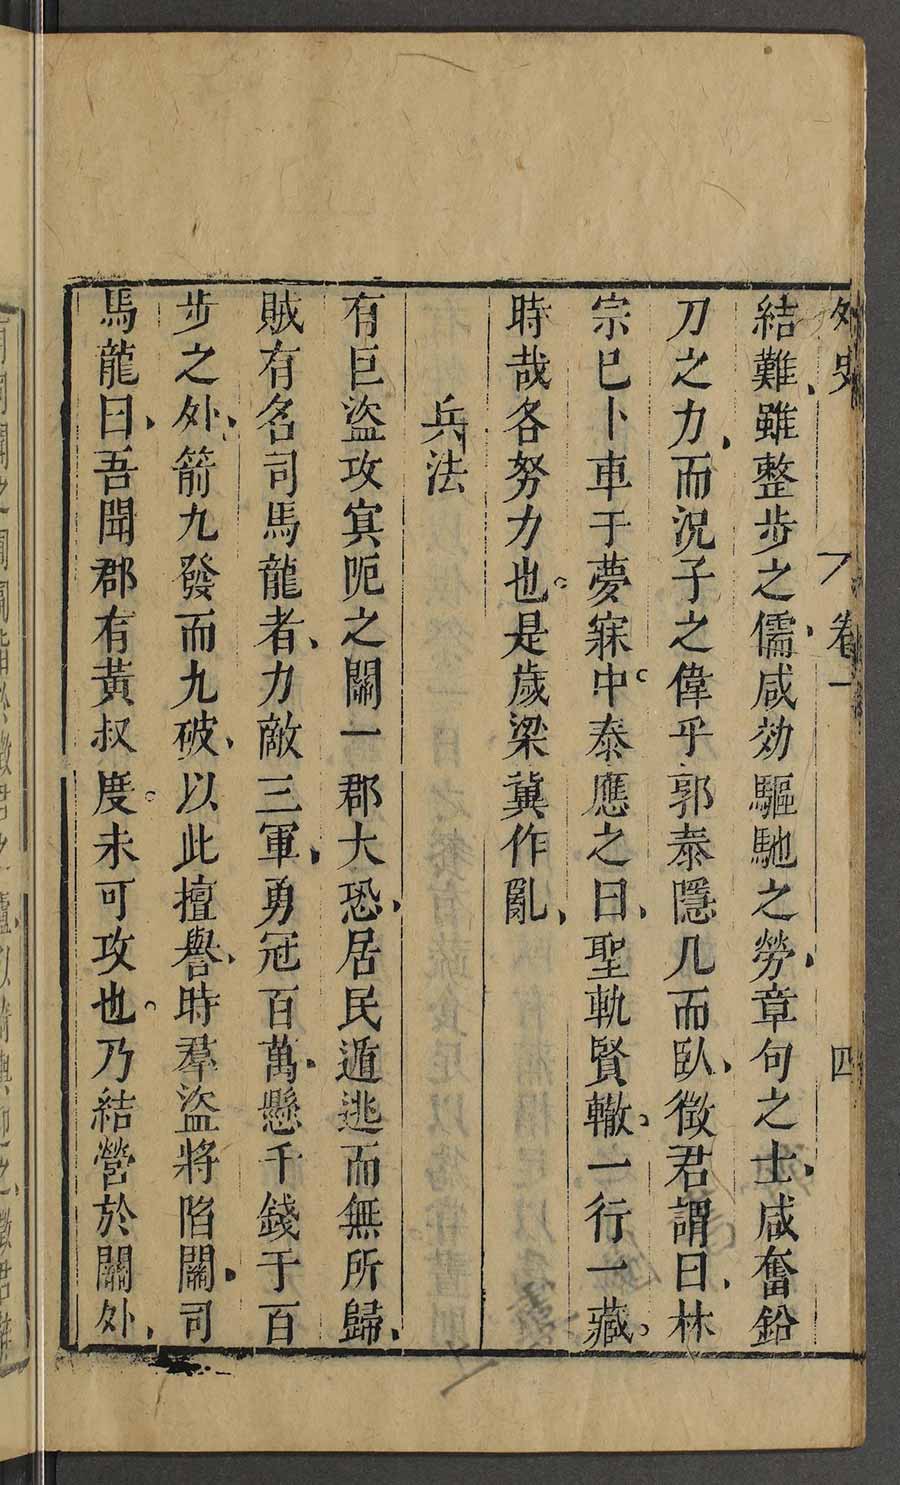 外史 卷一 四
結難雖整步之儒咸効驅馳之勞章句之士咸奮鉛
刀之力而況子之偉乎郭泰隱几而臥徵君謂曰林
宗已卜車于夢寐中泰應之曰聖軌賢轍一行一藏
時哉各努力也是歲梁冀作亂
兵法
有巨盜攻寘阨之關一郡大恐居民遁逃而無所歸
賊有名司馬龍者力敵三軍勇冠百萬懸千錢于百
步之外箭九發而九破以此擅譽時羣盜將陷關司
馬龍曰吾聞郡有黃叔度未可攻也乃結營於關外